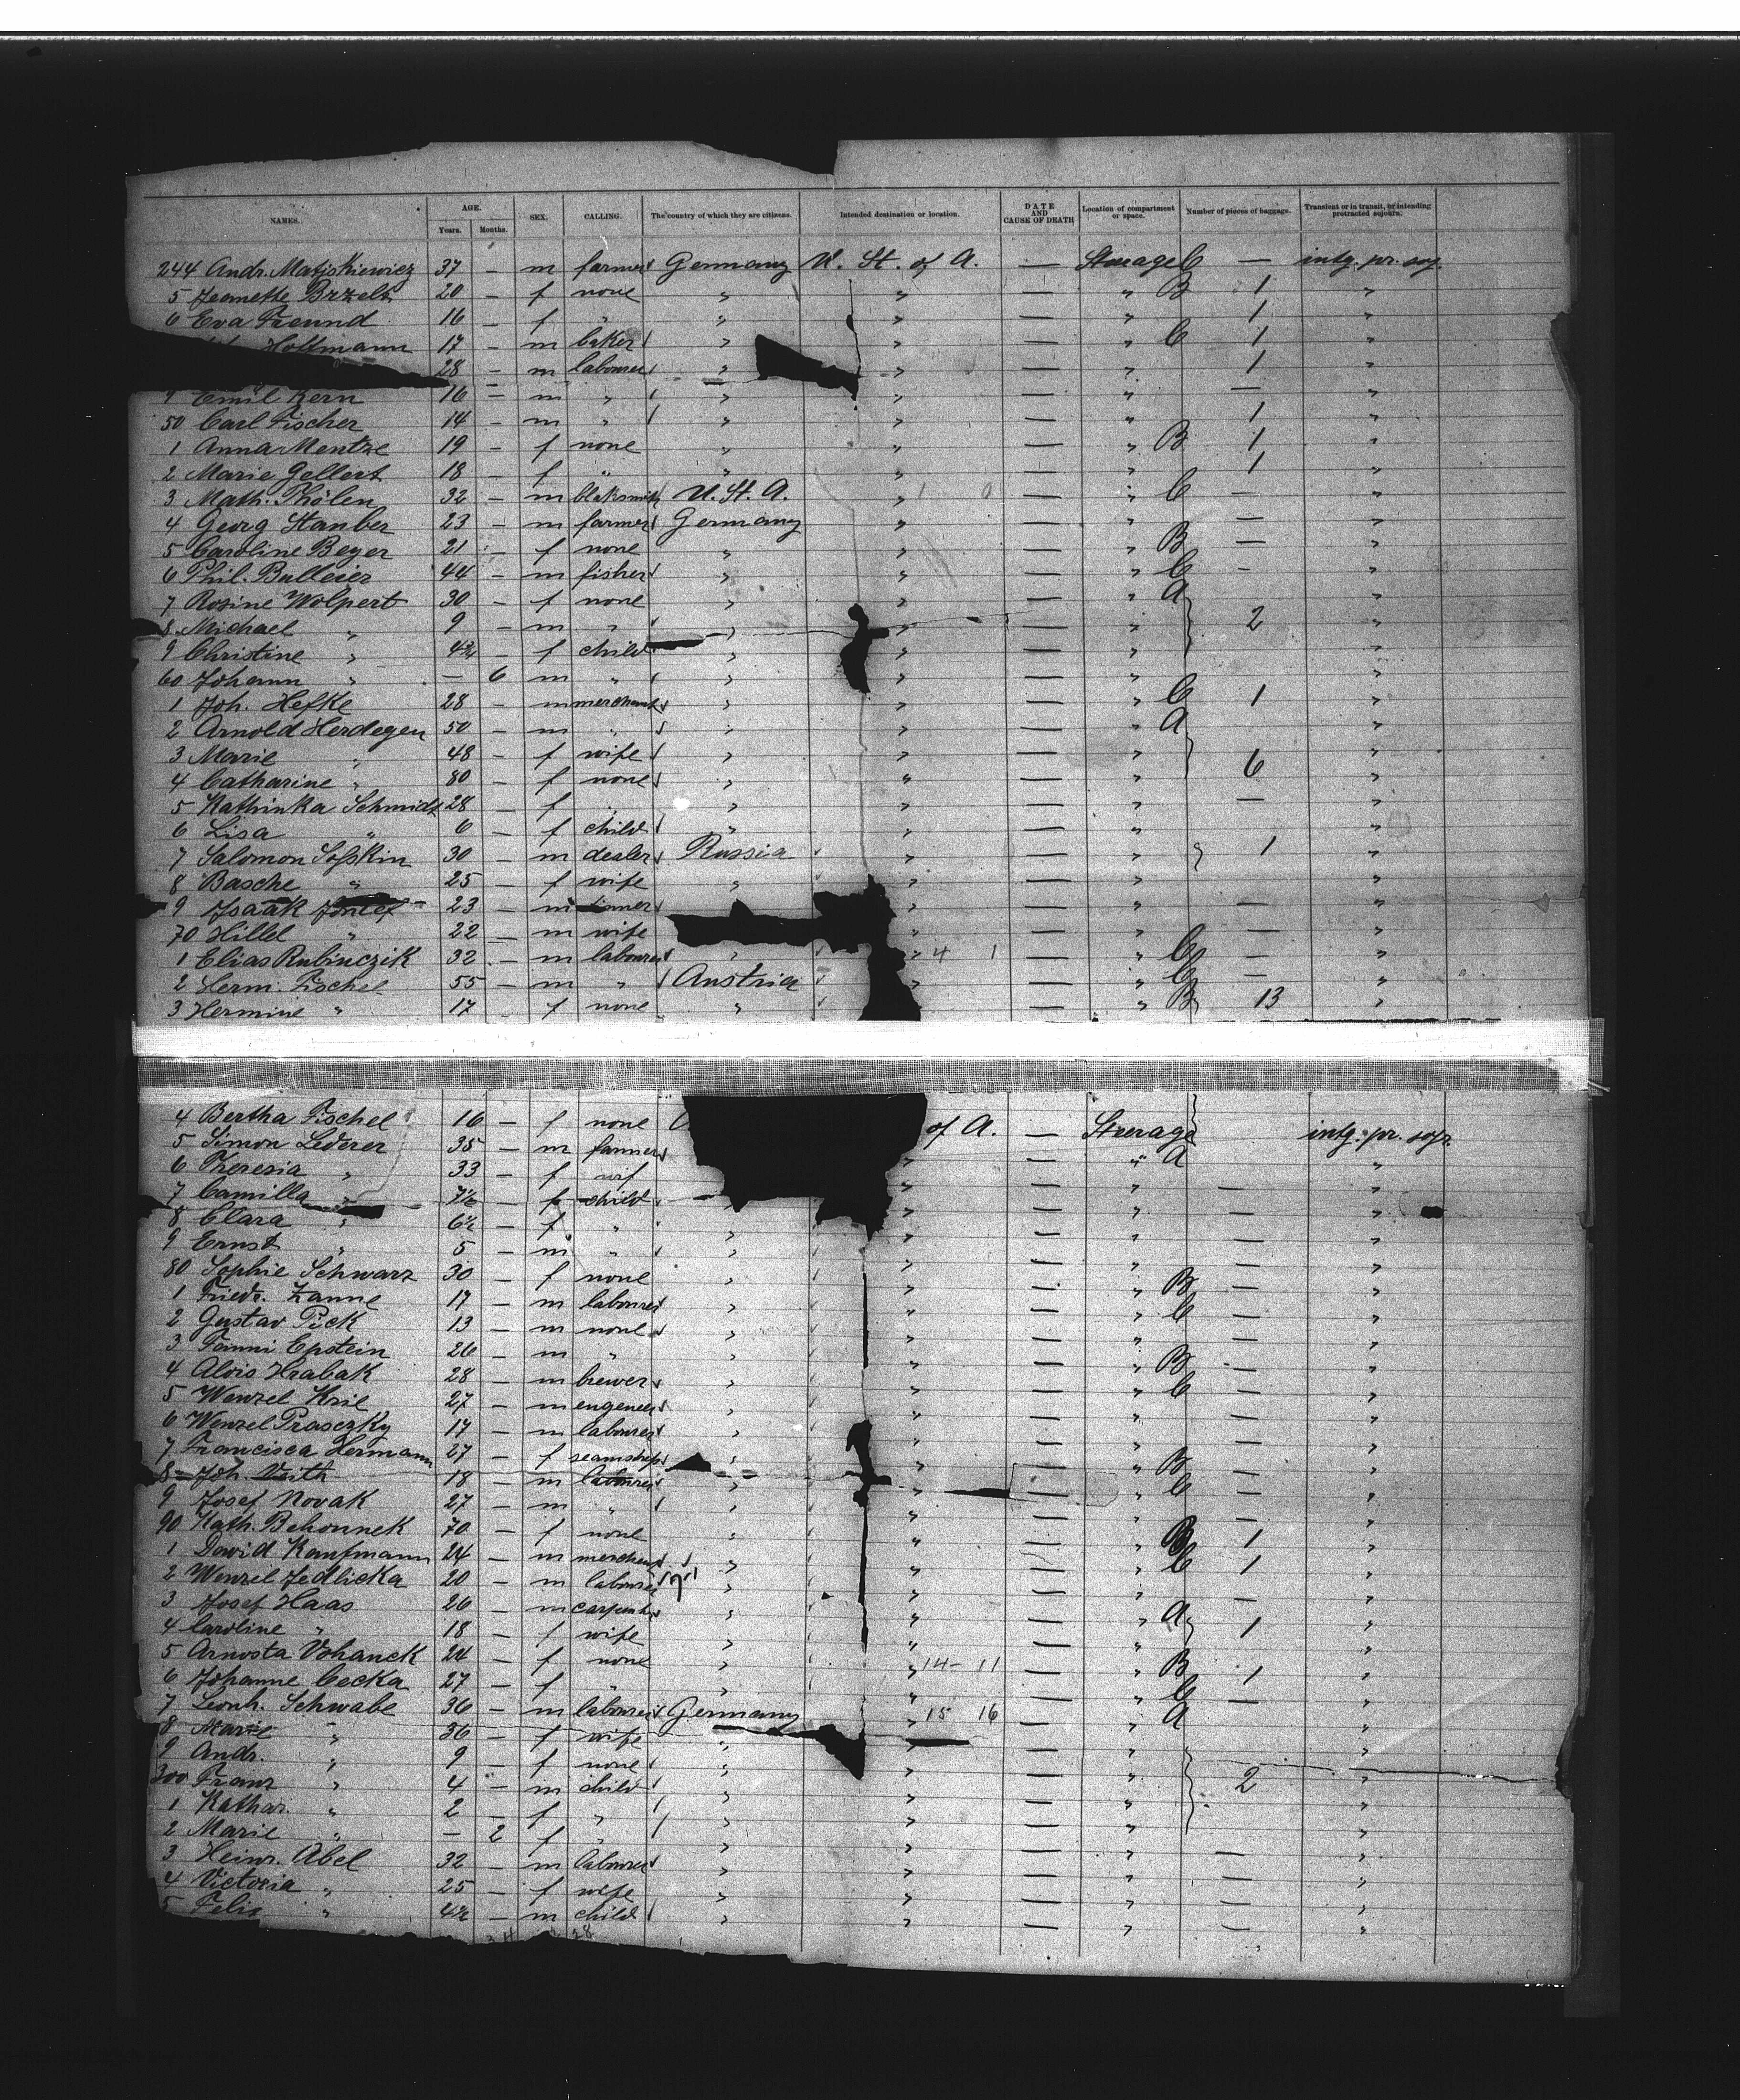 NAMES. AGE. Years. Months. SEX. CALLING. The country of which they are citizens. Intended destination or location. DATE AND CAUSE OF DEATH Location of compartment or space. Number of pieces of baggage. Transient or in transit, or intending protracted sojourn.
244 Andr. Matjskiewicz 37 — m farmer Germany U. St. of A. — Steerage C — intg. pr. soj.
5 Jeanette Brzelz 20 — f none " " — " B 1 "
6 Eva Freund 16 — f " " " — " 1 "
Hoffmann 17 — m baker " " — " C 1 "
28 — m labourer " " — " 1 "
9 Emil Kern 16 — m " " " — " — "
50 Carl Fischer 14 — m " " " — " 1 "
1 Anna Mentze 19 — f none " " — " B 1 "
2 Marie Gellert 18 — f " " " — " 1 "
3 Math. Thölen 32 — m blaksmith U. St. A. " 1 0 — " C — "
4 Georg Stauber 23 — m farmer Germany " — " — "
5 Caroline Beyer 21 — f none " " — " B — "
6 Phil. Balleier 44 — m fisher " " — " C - "
7 Rosine Wolpert 30 — f none " " — " A "
8 Michael " 9 — m " " " — " 2 "
9 Christine " 4¾ — f child " " — " "
60 Johann " — 6 m " " " — " "
1 Joh. Hefke 28 — m merchant " " — " C 1 "
2 Arnold Herdegen 50 — m " " " — " A "
3 Marie " 48 — f wife " " — " "
4 Catharine " 80 — f none " " — " 6 "
5 Kathinka Schmidt 28 — f " " " — " — "
6 Lisa " 6 — f child " " — " "
7 Salomon Sosskin 30 — m dealer Russia " — " 1 "
8 Basche " 25 — f wife " " — " "
9 Isaak 23 — m " — " — "
70 Hillel " 22 — m wife " — " — "
1 Elias Rubinczik 32 — m labourer " " 4 1 — " C — "
2 Herm. Fischel 55 — m " Austria " — " C — "
3 Hermine " 17 f none " — " B 13 "
4 Bertha Fischel 16 — f none of A. — Steerage intg. pr. sojr.
5 Simon Lederer 35 — m farmer " — " A "
6 Theresia " 33 — f wif " — " — "
7 Camilla " 7½ — f child " " — " — "
8 Clara " 6½ — f " " — " — "
9 Ernst " 5 — m " " " — " — "
80 Sophie Schwarz 30 — f none " " — " B — "
1 Friedr. Zanne 17 — m labourer " " — " C — "
2 Gustav Pick 13 — m none " " — " — "
3 Fanni Epstein 26 — m " " " — " B — "
4 Alois Hrabak 28 — m brewer " " — " C — "
5 Wenzel Kril 27 — m engeneer " " — " — "
6 Wenzel Prasczky 17 — m labourer " " — " — "
7 Francisca Hermann 27 — f seamstress " " — " B — "
8 Joh. Veith 18 — m labourer " " — " C — "
9 Josef Novak 27 — m " " " — " — "
90 Kath. Behounek 70 — f none " " — " B 1 "
1 David Kaufmann 24 — m merchant " " — " C 1 "
2 Wenzel Jedlicka 20 — m labourer " " — " — "
3 Josef Haas 26 — m carpent. " " — " A "
4 Caroline " 18 — f wife " " — " 1 "
5 Arnosta Vohanck 24 — f none " " 14 — 11 — " B 1 "
6 Johanne Cecka 27 — f " " " — " C — "
7 Leonh. Schwabe 36 — m labourer Germany " 15 16 — " A "
8 Marie " 36 — f wife " " — " "
9 Andr. " 9 — f none " " — " "
300 Franz " 4 — m child " " — " 2 "
1 Kathar. " 2 — f " " " — " "
2 Marie " — 2 f " " " — " "
3 Heinr. Abel 32 — m labourer " " — " — "
4 Victoria " 25 — f wife " " — " — "
5 Felix " 4½ — m child " " — " — "